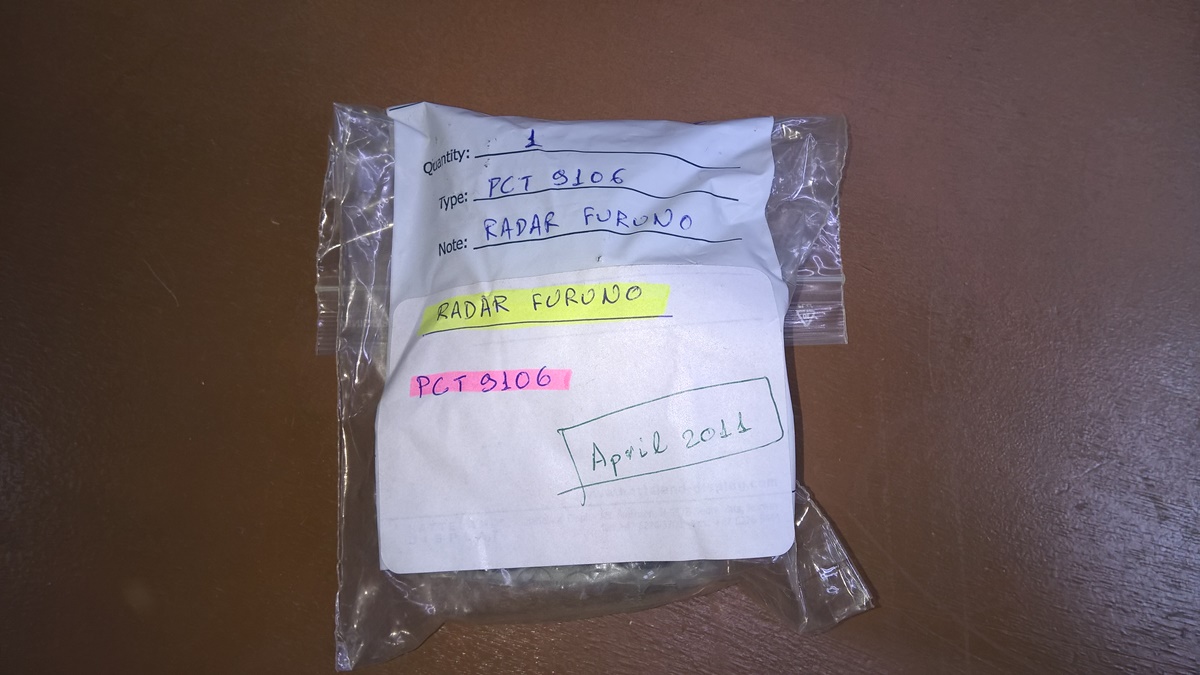 Quantity: 1
Type: PCT 9106
Note: RADAR FURUNO
RADAR FURUNO
PCT 9106
April 2011